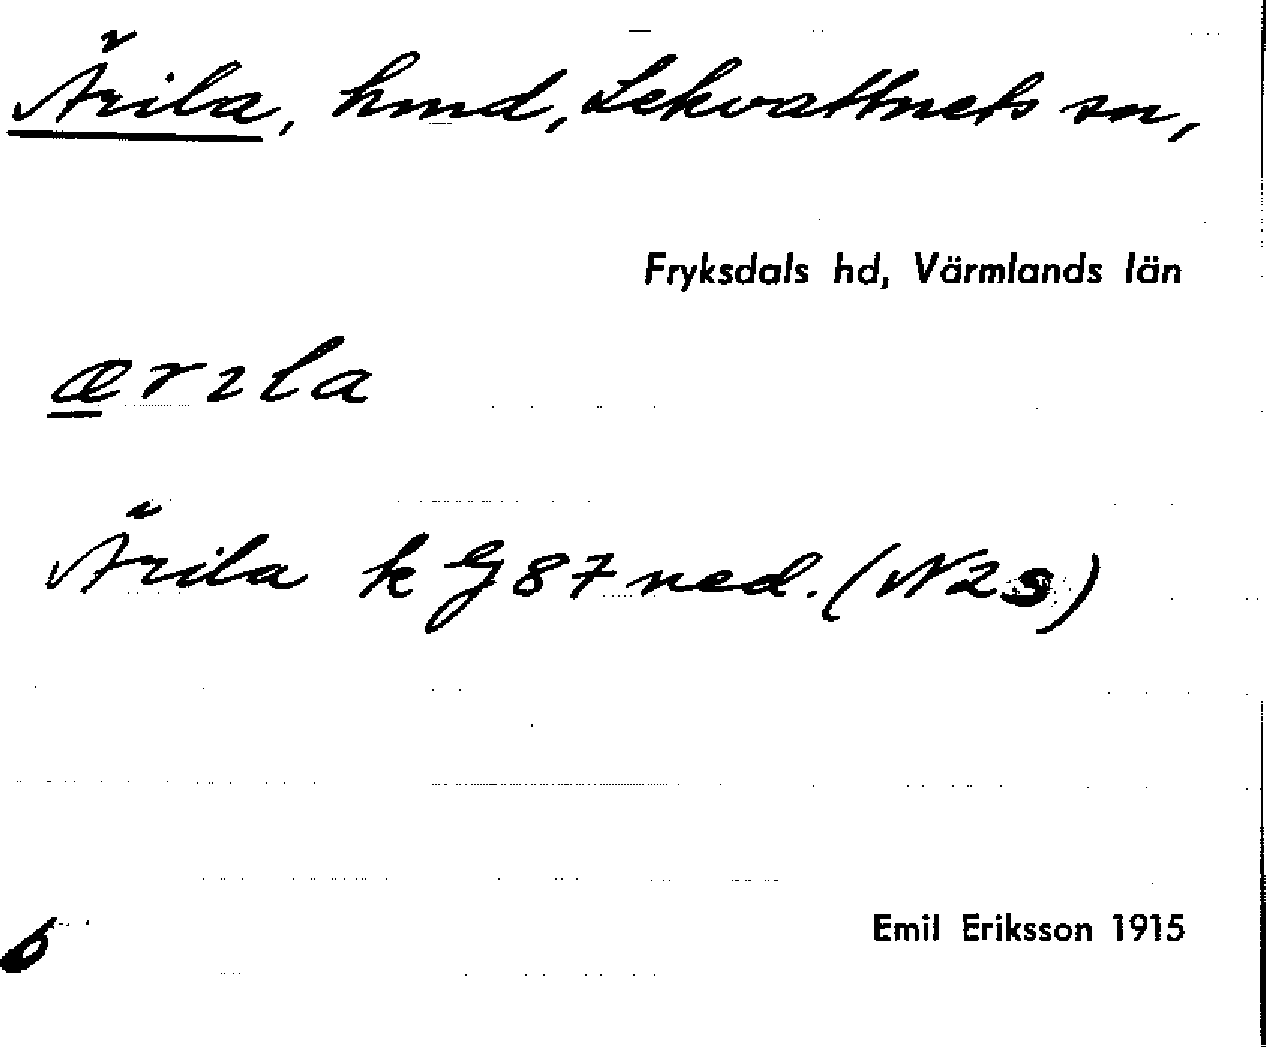 Ärila, hmd, Lekvattnets sn,
Fryksdals hd, Värmlands län
ærıla
Ärila k G 87 ned. (N2s)
Emil Eriksson 1915